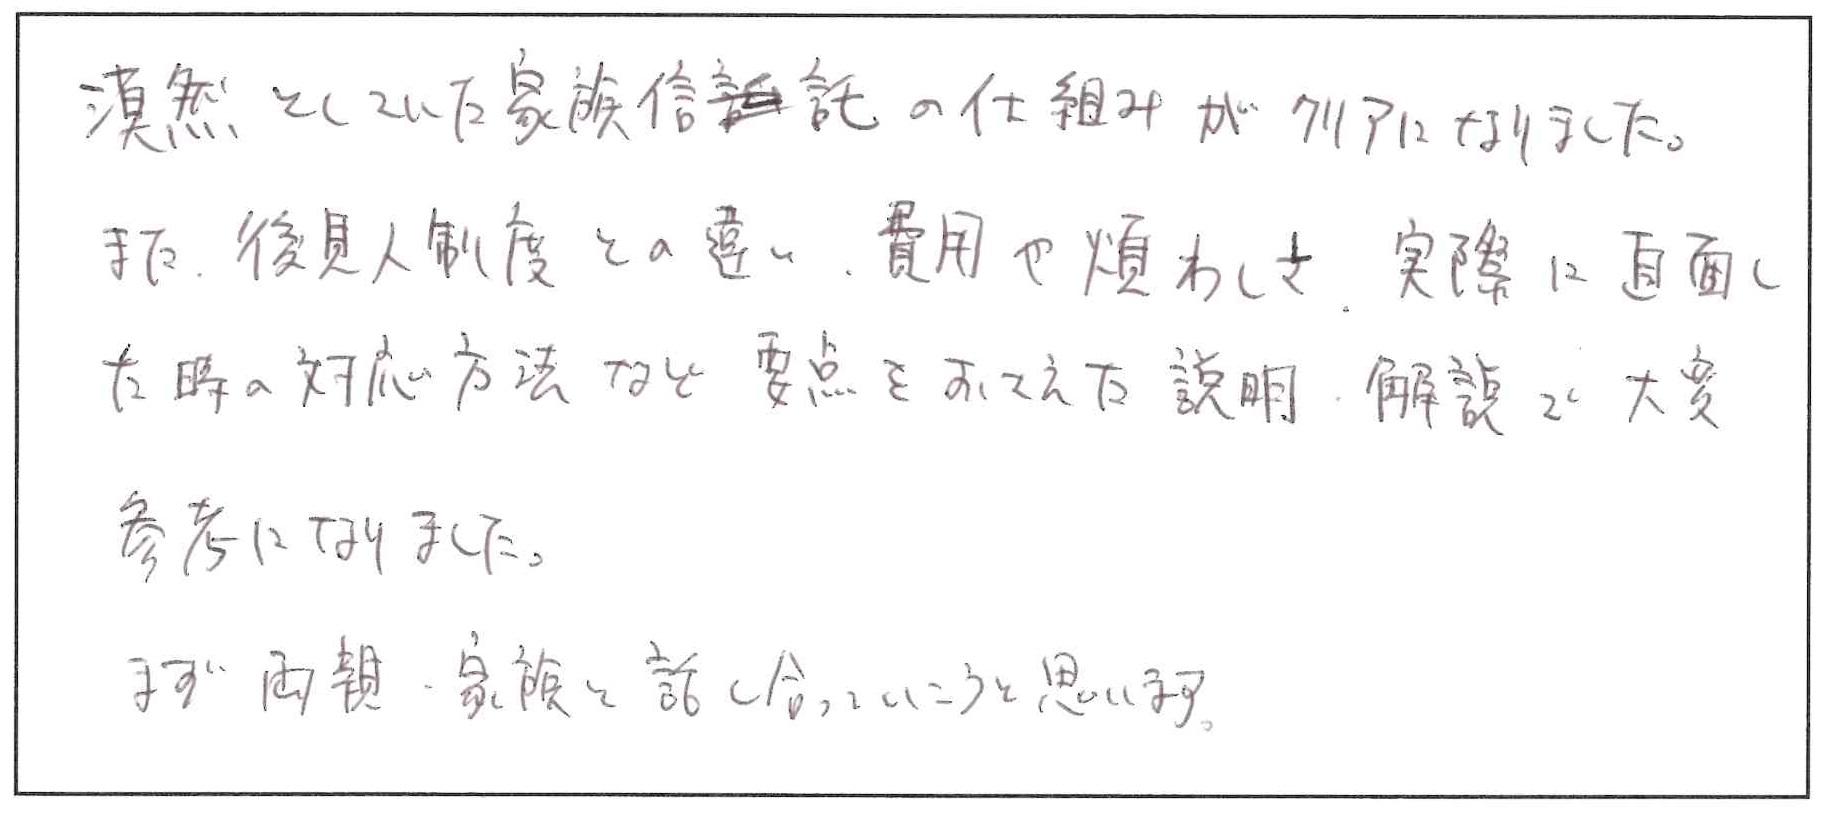 漠然としていた家族信託の仕組みがクリアになりました。
また、後見人制度との違い、費用や煩わしさ、実際に直面し
た時の対応方法など要点をおさえた説明・解説で大変
参考になりました。
まず両親・家族と話し合っていこうと思います。